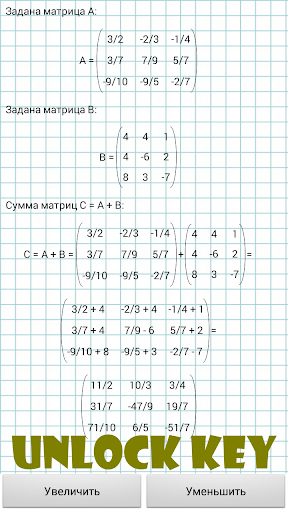 Задана матрица A:
3/2 -2/3 -1/4
A = 3/7 7/9 5/7
-9/10 -9/5 -2/7
Задана матрица B:
4 4 1
B = 4 -6 2
8 3 -7
Сумма матриц C = A + B:
3/2 -2/3 -1/4 4 4 1
C = A + B = 3/7 7/9 5/7 + 4 -6 2 =
-9/10 -9/5 -2/7 8 3 -7
3/2 + 4 -2/3 + 4 -1/4 + 1
3/7 + 4 7/9 - 6 5/7 + 2 =
-9/10 + 8 -9/5 + 3 -2/7 - 7
11/2 10/3 3/4
31/7 -47/9 19/7
71/10 6/5 -51/7
UNLOCK KEY
Увеличить Уменьшить